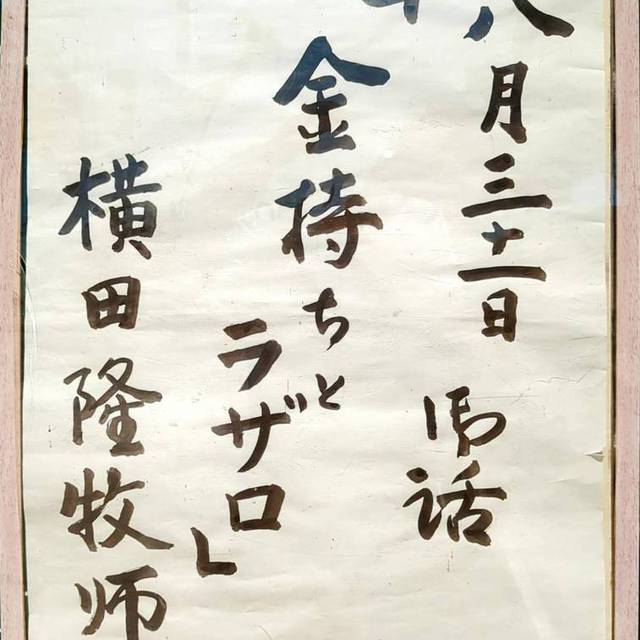 八月三十一日
御話
金持ちと
ラザロ」
横田隆牧師